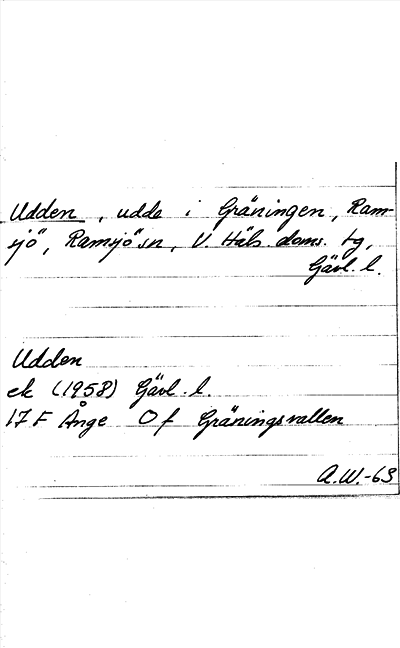 Udden, udde i Gräningen, Ram-
sjö, Ramsjö sn, V. Häls. doms. tg,
Gävl. l.
Udden
ek (1958) Gävl. l.
17 F Ånge O f Gräningsvallen
A.W.-63